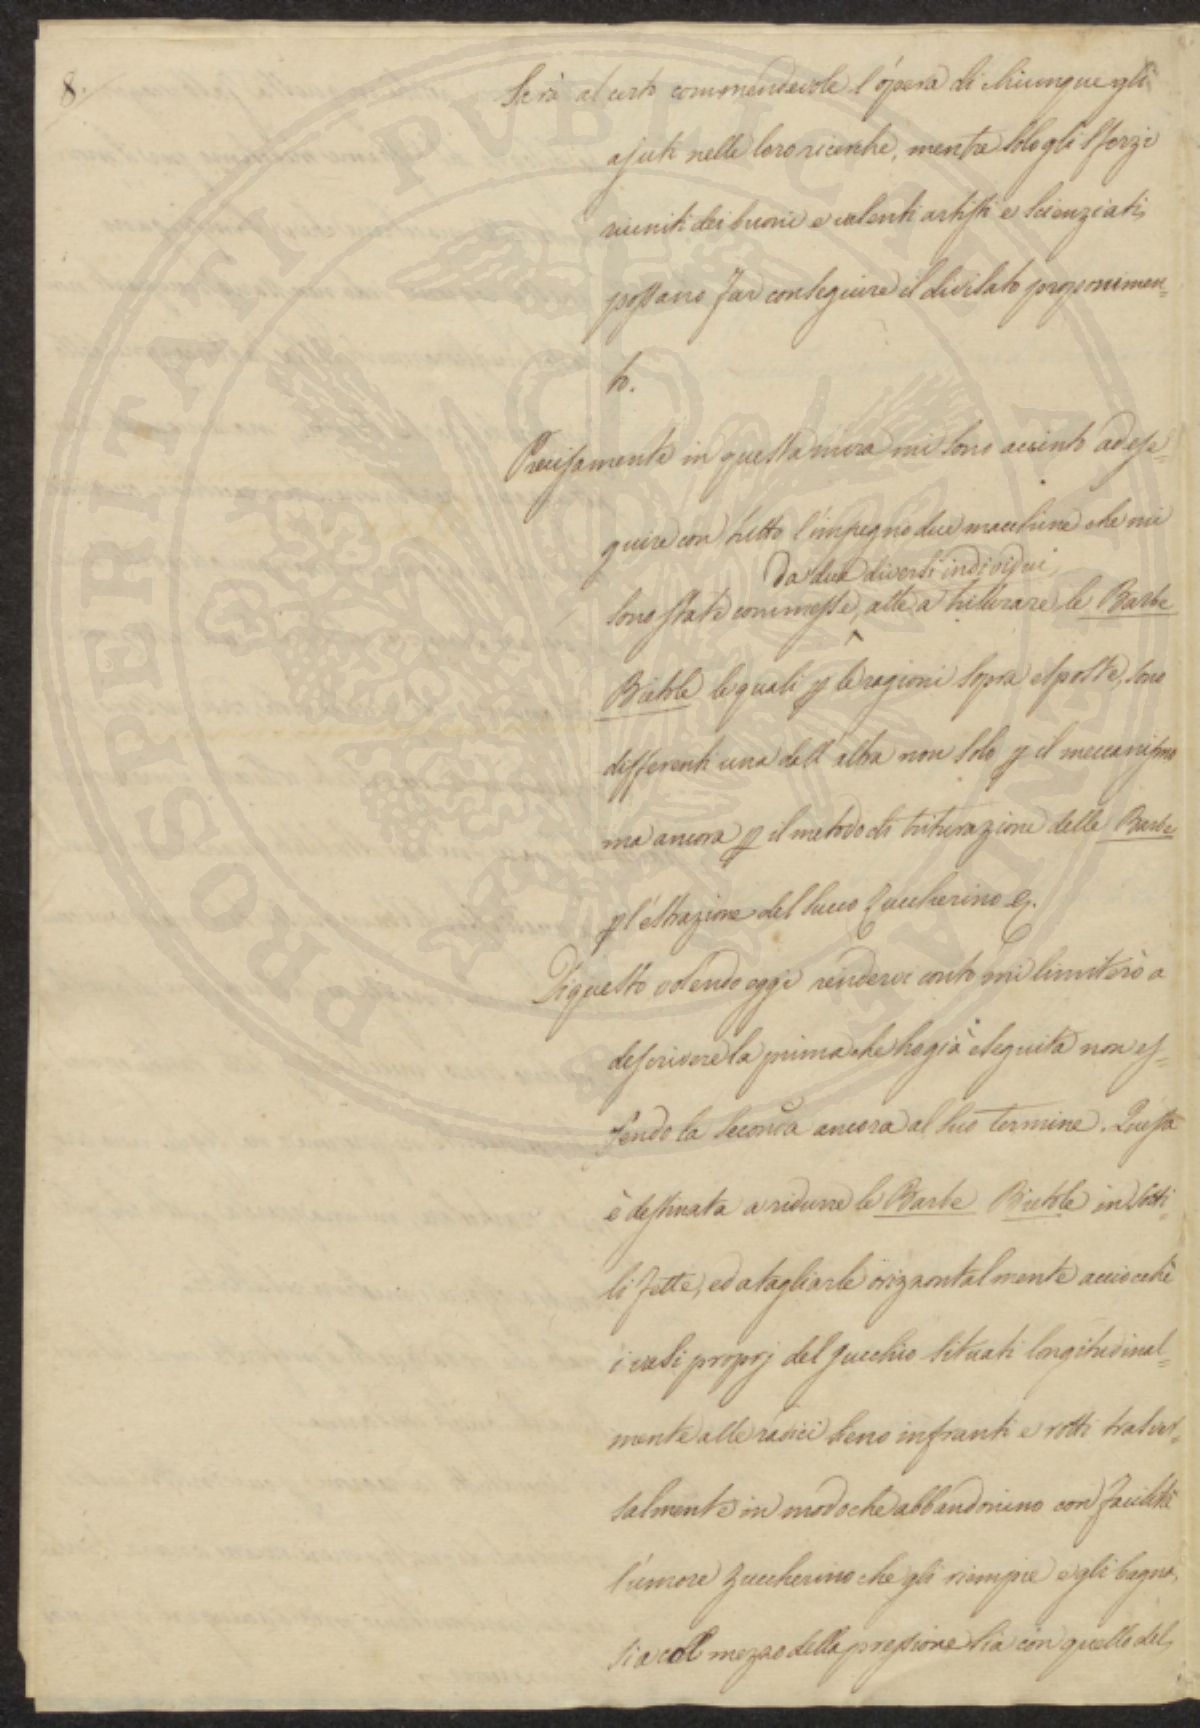 8.
Serà al certo commendevole l'opera di chiunque gli
ajuti nelle loro ricerche, mentre solo gli sforzi
riuniti dei buoni e valenti artisti e scienziati,
possano far conseguire il divisato proponimen=
to.
Precisamente in questa mira mi sono accinto ad ese=
guire con tutto l'impegno due macchine che mi
da due diversi individui
sono state commesse, atte a triturare le Barbe
Bietole le quali p le ragioni sopra esposte, sono
differenti una dall'altra non solo p il meccanismo
ma ancora p il metodo di triturazione delle Barbe
p l'estrazione del succo Zuccherino &.
Di questo volendo oggi rendervi conto mi limiterò a
descrivere la prima che ho già eseguita non es=
sendo la seconda ancora al suo termine. Questa
è destinata a ridurre le Barbe Bietole in sotti=
li fette, ed a tagliarle orizzontalmente acciocchè
i vasi proprj del Succhio situati longitudinal=
mente alle radici sieno infranti e rotti trasver=
salmente in modo che abbandonino con facilità
l'umore Zuccherino che gli riempie e gli bagna,
sia col mezzo della pressione sia con quello del
PROSPERITATI PUBLICAE AUGENDAE